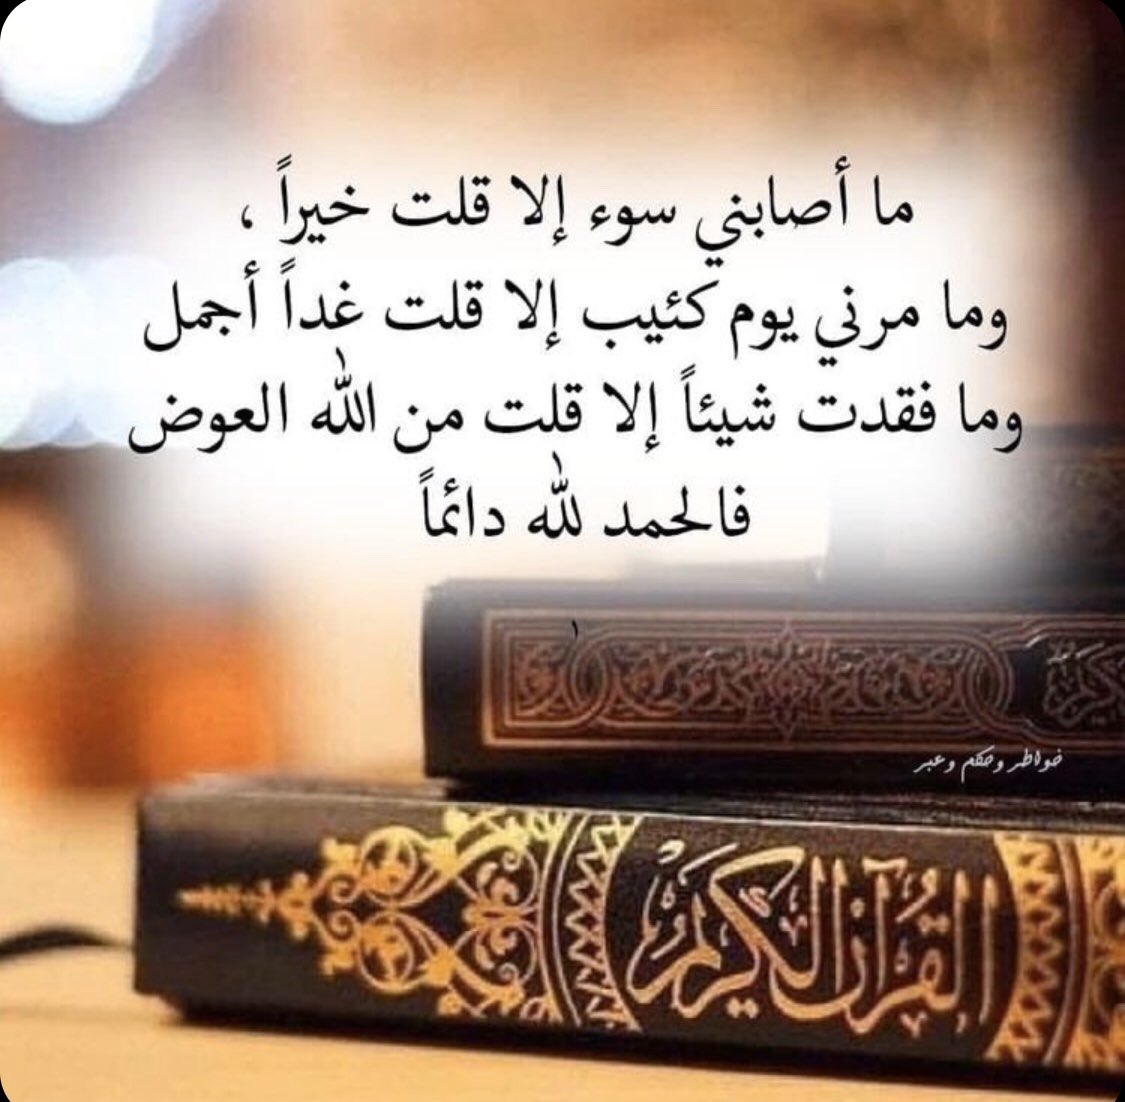 ما أصابني سوء إلا قلت خيراً ،
وما مرني يوم كئيب إلا قلت غداً أجمل
وما فقدت شيئاً إلا قلت من الله العوض
فالحمد لله دائماً
الكريم
خواطر وحكم وعبر
القرآن الكريم